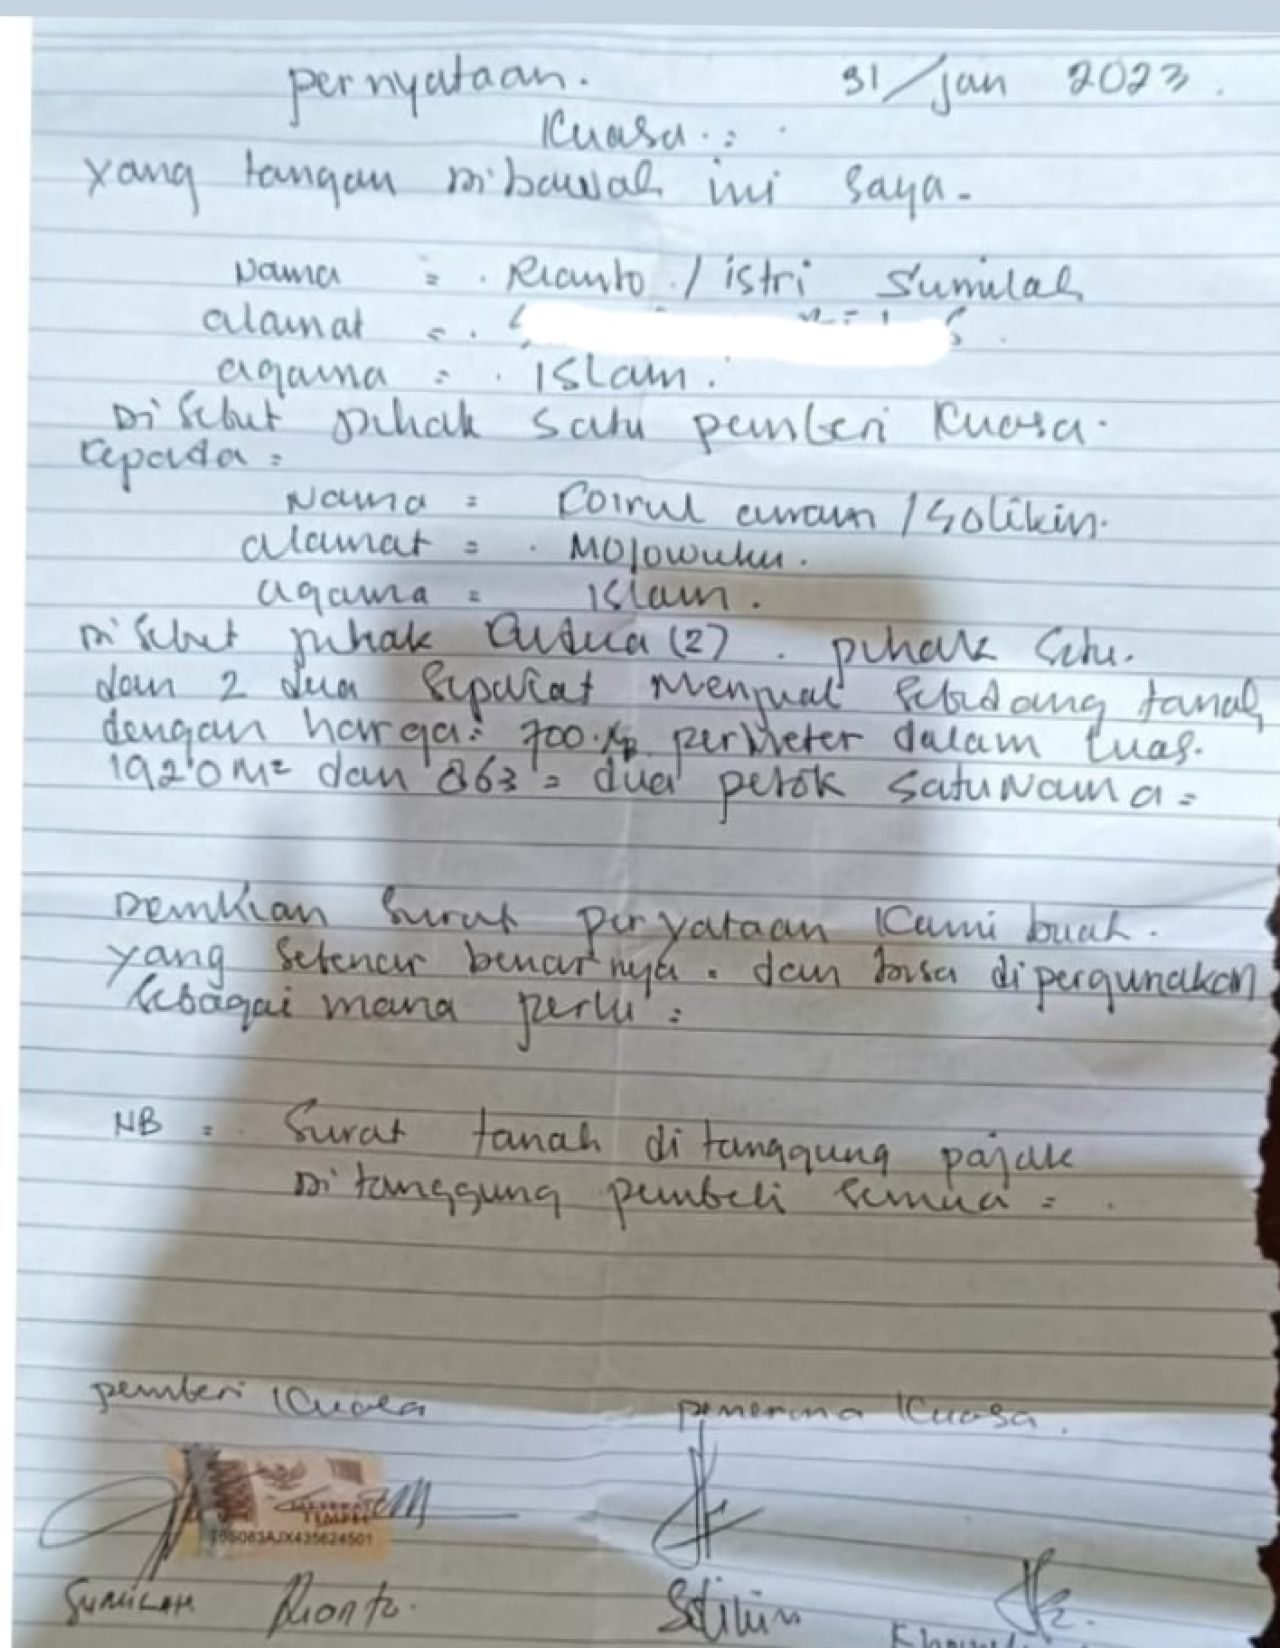 pernyataan. 31/jan 2023.
Kuasa.:
Yang tangan Dibawah ini saya.
Nama : Rianto / istri Sumilah
alamat :
agama : islam.
Disebut pihak satu pemberi Kuasa.
kepada :
Nama : Coirul anam / Solikin.
alamat : Mojowuku.
agama : islam.
Disebut pihak kedua (2). pihak satu.
dan 2 dua sepakat Menjual sebidang tanah
dengan harga: 700.Rp perMeter dalam luas.
1920 M² dan 863 = dua petok satu Nama =
Demkian surat peryataan Kami buat.
yang sebenar benarnya. dan bisa dipergunakan
sebagai mana perlu :
NB : Surat tanah ditanggung pajak
Ditanggung pembeli semua =
pemberi Kuasa penerima Kuasa.
TEMPEL
SUMILAH Rianto. Solikin